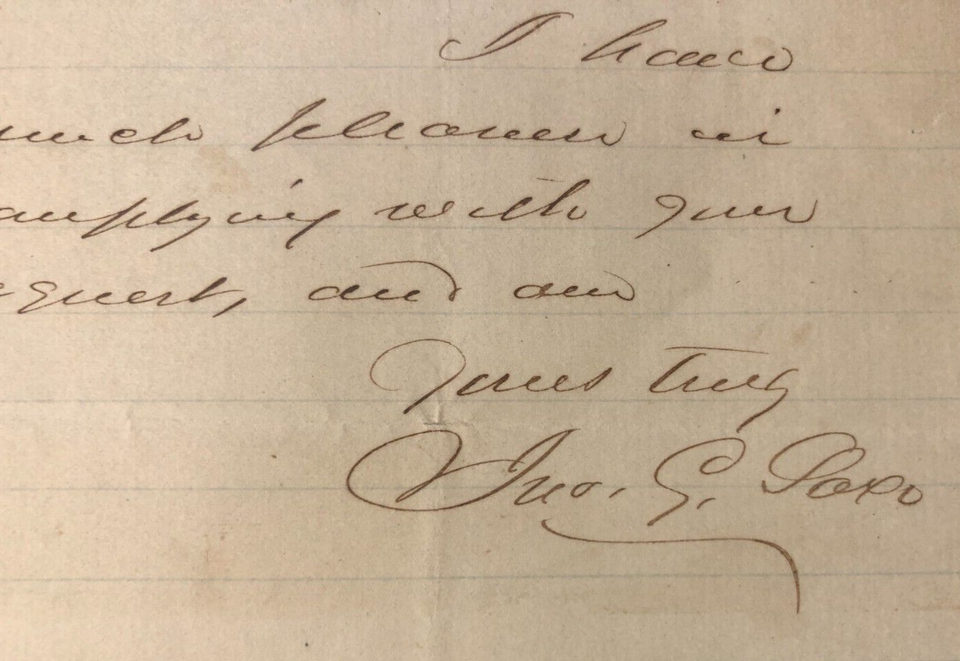 I have
much pleasure in
omplying with your
equest, and am
Yours truly
Jno. G. Saxe